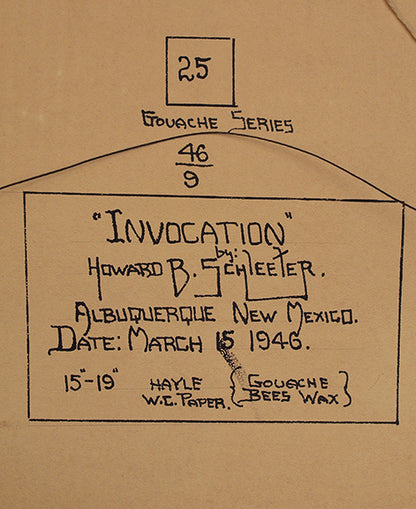 25
GOUACHE SERIES
46
9
"INVOCATION"
by:
HOWARD B. SCHLEETER.
ALBUQUERQUE NEW MEXICO.
DATE: MARCH 15 1946.
15"-19" HAYLE { GOUACHE }
W.C. PAPER. { BEES WAX }